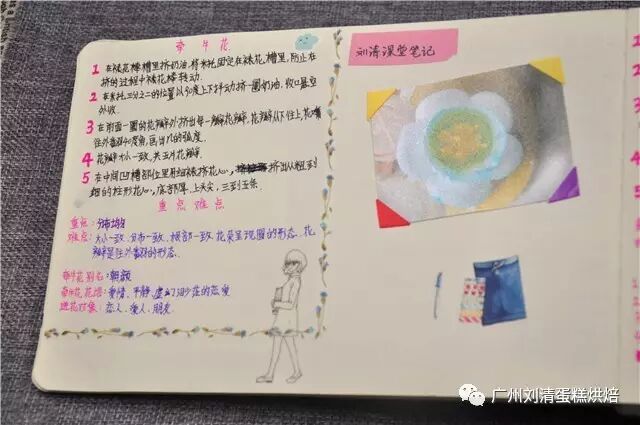 牵牛花
1 在裱花棒槽里挤奶油,将米托固定在裱花槽里,防止在
挤的过程中裱花棒转动.
2 在米托三分之二的位置以90度上下抖动挤一圈奶油,收口悬空
外收.
3 在前面一圈的花瓣外挤出每一瓣花瓣,花瓣从下往上,花嘴
往外翻45度角,画出几的弧度.
4 花瓣大小一致,共五片花瓣.
5 在中间凹槽部位用细裱挤花心,挤出从粗到
细的柱形花心,底部厚,上尖,三到五条.
重点难点
重点:分布均匀
难点:大小一致、分布一致、根部一致,花朵呈现圆的形态、花
瓣是往外翻的形态.
牵牛花别名:朝颜
牵牛花花语:爱情、平静、虚幻渺茫的恋爱
送花对象:恋人、爱人、朋友
刘清课堂笔记
广州刘清蛋糕烘焙